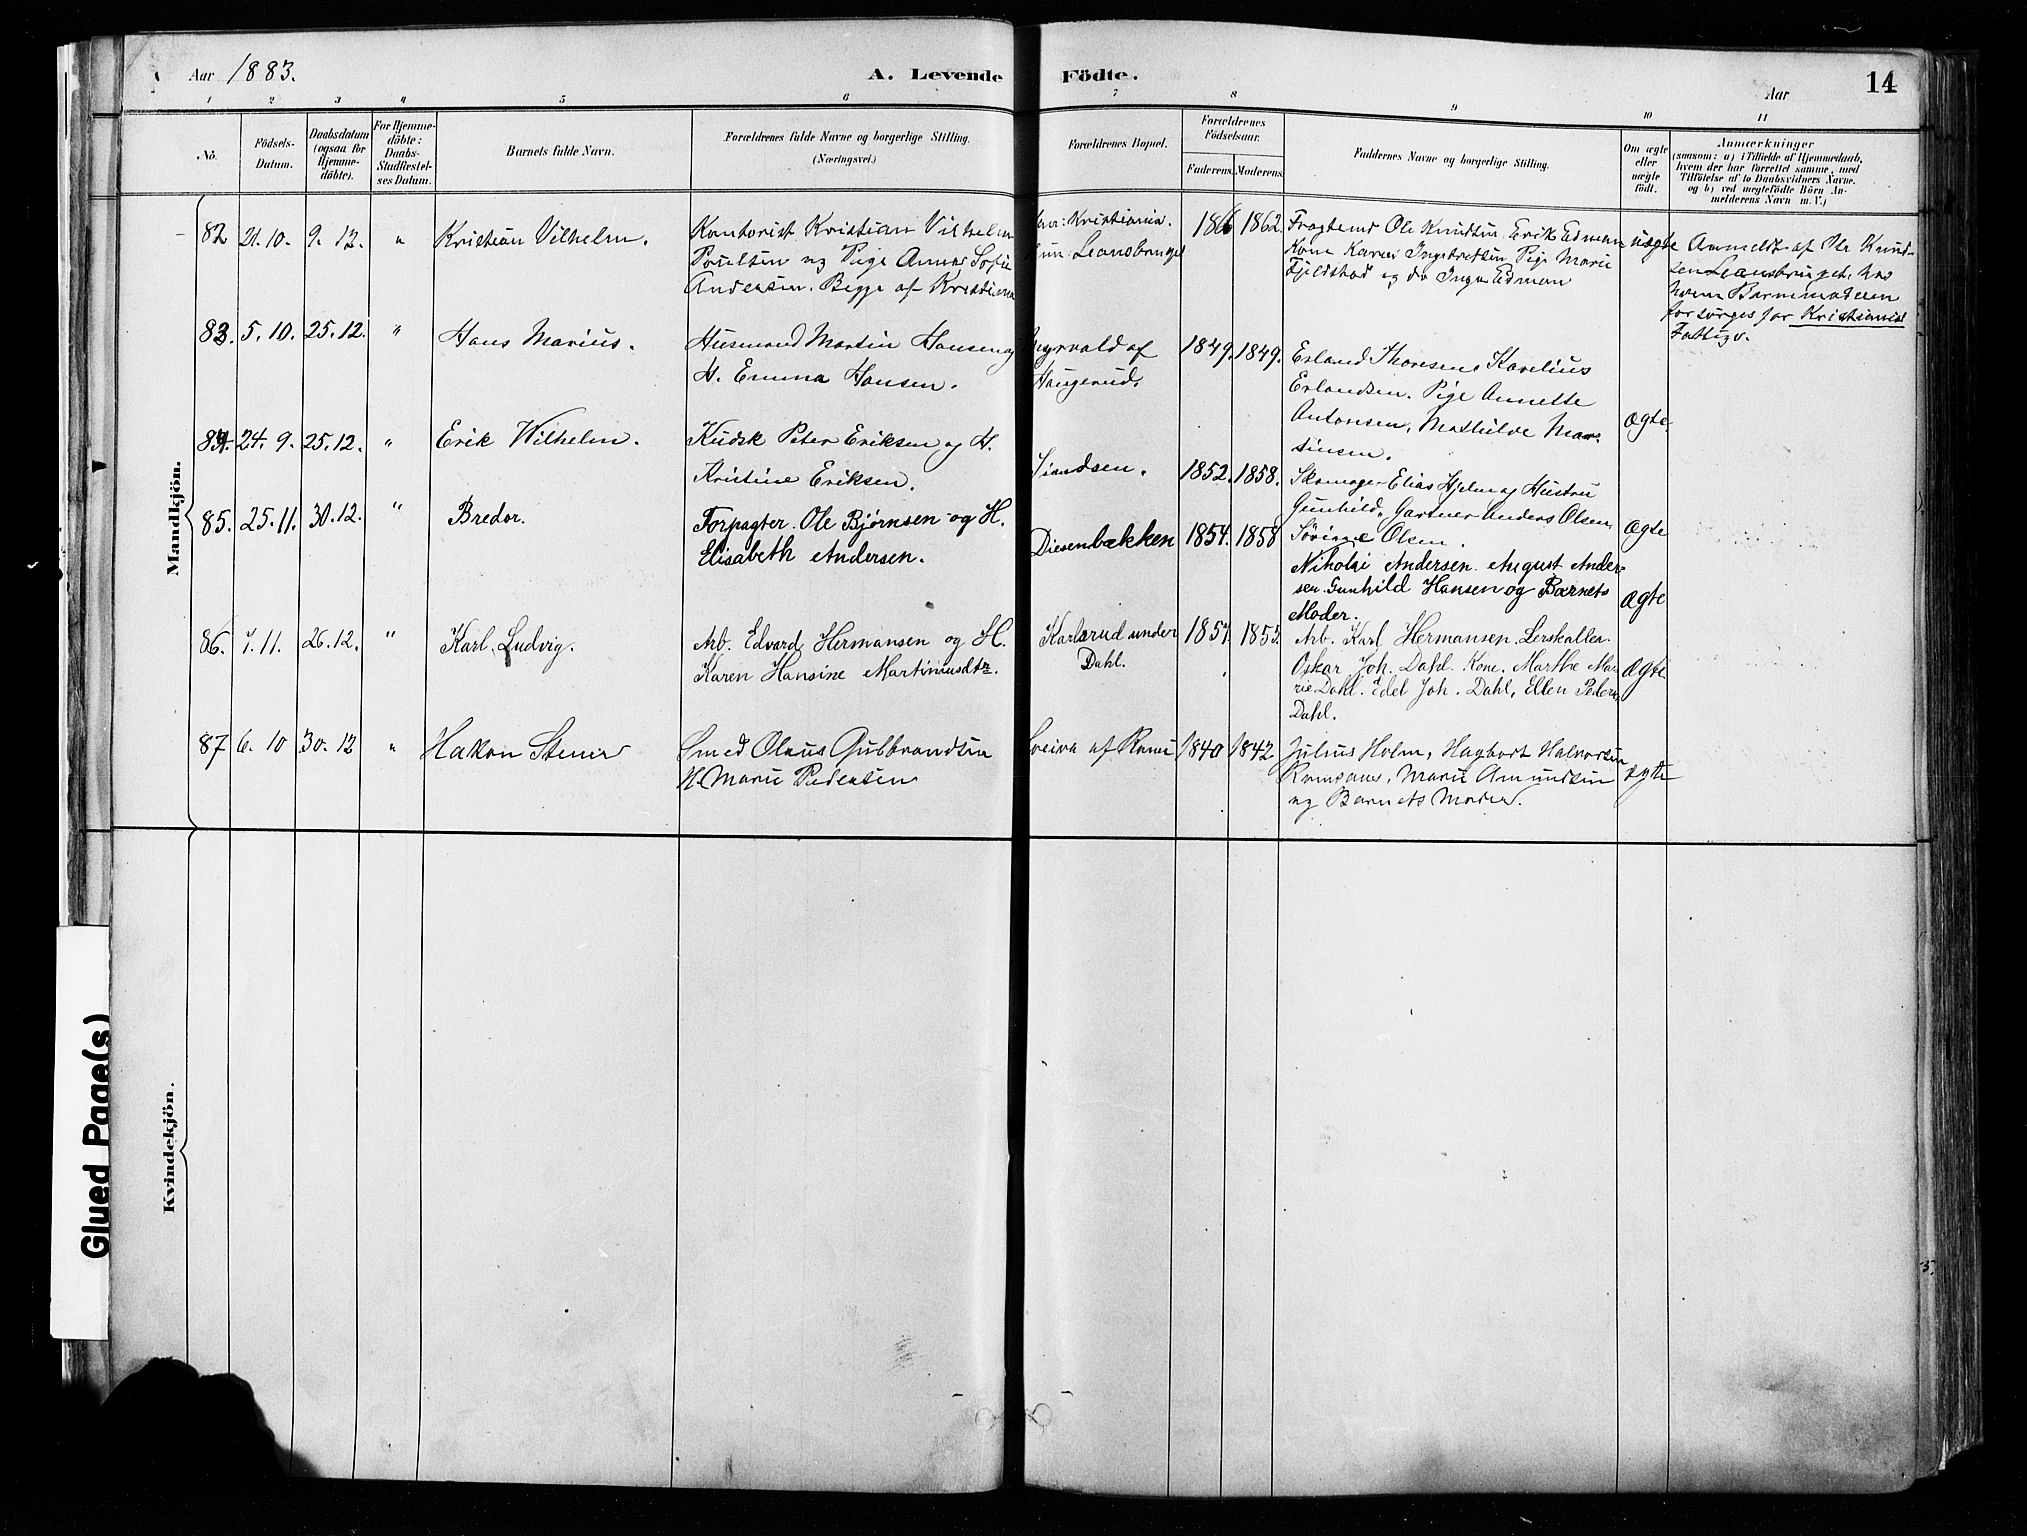 Aar 1883.
A. Levende Födte.
Aar
14
1 2 3 4 5 6 7 8 9 10 11
No.
Födsels-Datum.
Daabsdatum (ogsaa for Hjemme-döbte).
For Hjemme-döbte: Daabs-Stadfæstel-ses Datum.
Barnets fulde Navn.
Forældrenes fulde Navne og borgerlige Stilling. (Næringsvei.)
Forældrenes Bopæl.
Forældrenes Födselsaar.
Faderens. Moderens.
Faddernes Navne og borgerlige Stilling.
Om ægte eller uægte födt.
Anmærkninger
(saasom: a) i Tilfælde af Hjemmedaab,
hvem der har forrettet samme, med
Tilföielse af to Daabsvidners Navne.
og b) ved uægtefödte Börn An-
melderens Navn m. V.)
Mandkjön.
82 21.10. 9.12. " Kristian Vilhelm.
Kontorist Kristian Vilhelm
Poulsen og Pige Anna Sofie
Andersen. Begge af Kristiania
Kristiania.
Leansbruget
186 1862.
Ole Knudsen Erik Edman
Kone Karen Ingebretsen Pige Marie
Fjeldstad og do Inga Edman
uægte
Anmeldt af Ole Knud-
sen Leansbruget, hos
hvem Barnemoderen
forsørges for Kristiania
Fattigv.
83. 5.10. 25.12. " Hans Marius.
Husmand Martin Hansen og
H. Emma Hansen.
af
Haugerud.
1849. 1849.
Erland Thoresen, Karelius
Erlandsen. Pige Annette
Antonsen, Mathilde Mar-
tinsen.
Ægte.
84. 24.9. 25.12. " Erik Wilhelm.
Kudsk Peter Eriksen og H.
Kristine Eriksen.
1852. 1858.
Skomager Elias Hjelm og Hustru
Gunhild, Gartner Anders Olsen,
Sørine Olsen.
Ægte
85. 25.11. 30.12. " Bredor.
Forpagter Ole Bjørnsen og H.
Elisabeth Andersen.
Diesenbækken
1854. 1858
Nikolai Andersen. August Ander-
sen Gunhild Hansen og Barnets
Moder.
Ægte
86. 7.11. 26.12. " Karl Ludvig.
Arb. Edvard Hermansen og H.
Karen Hansine Martinusdtr.
Karlsrud under
Dahl.
1857. 1853.
Arb. Karl Hermansen. Lerskallen
Oskar Joh. Dahl. Kone Marthe Ma-
rie Dahl. Edel Joh. Dahl, Ellen Peders
Dahl.
Ægte
87 6.10 30.12 " Hakon Stener
Smed Olaus Gulbrandsen
H. Marie Pedersen
af
1840 1842
Julius Holm, Hagbart Halvorsen
Marie Amundsen
og Barnets Moder.
ægte
Kvindekjön.
Glued Page(s)